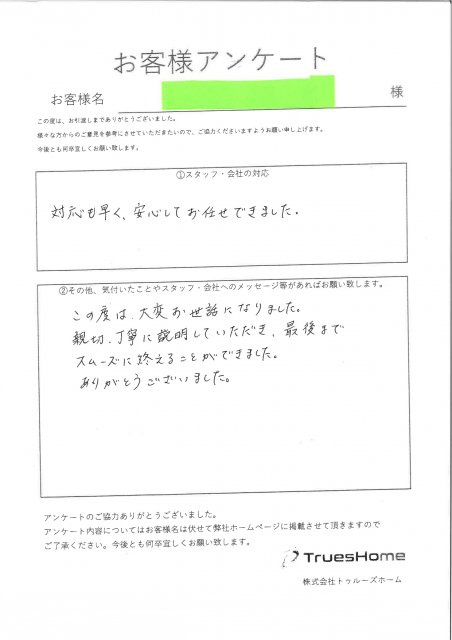 お客様アンケート
お客様名 様
この度は、お引渡しまでありがとうございました。
様々な方からのご意見を参考にさせていただきたいので、ご協力くださいますようお願い申し上げます。
今後とも何卒宜しくお願い致します。
①スタッフ・会社の対応
対応も早く、安心してお任せできました。
②その他、気付いたことやスタッフ・会社へのメッセージ等があればお願い致します。
この度は、大変お世話になりました。
親切、丁寧に説明していただき、最後まで
スムーズに終えることができました。
ありがとうございました。
アンケートのご協力ありがとうございました。
アンケート内容についてはお客様名は伏せて弊社ホームページに掲載させて頂きますので
ご了承ください。今後とも何卒宜しくお願い致します。
TruesHome
株式会社トゥルーズホーム